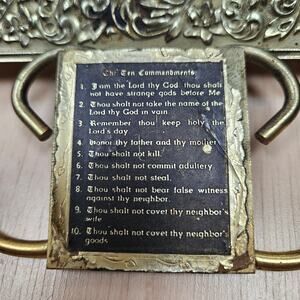 The Ten Commandments
1. I am the Lord thy God thou shalt
not have strange gods before Me
2. Thou shalt not take the name of the
Lord thy God in vain
3. Remember thou keep holy the
Lord's day
4. Honor thy father and thy mother
5. Thou shalt not kill.
6. Thou shalt not commit adultery.
7. Thou shalt not steal,
8. Thou shalt not bear false witness
against thy neighbor.
9. Thou shalt not covet thy neighbor's
wife
10. Thou shalt not covet thy neighbor's
goods